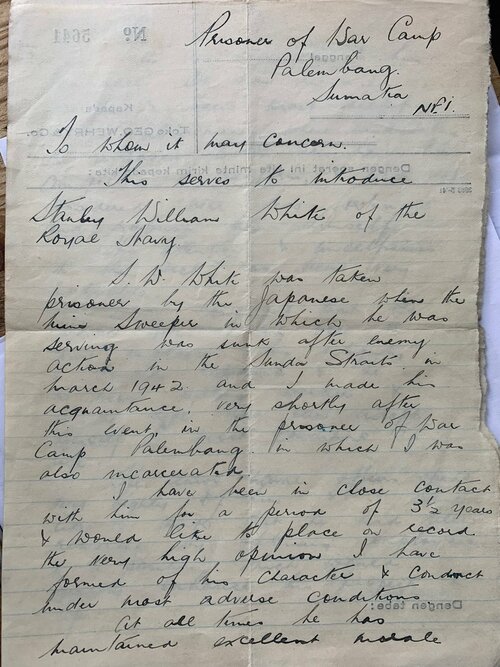 Prisoner of War Camp
Palembang.
Sumatra
NEI.
To whom it may concern.
This serves to introduce
Stanley William White of the
Royal Navy.
S. W. White was taken
prisoner by the Japanese when the
mine sweeper in which he was
serving was sunk after enemy
action in the Sunda Straits in
March 1942 and I made his
acquaintance, very shortly after
this event in the prisoner of War
Camp Palembang in which I was
also incarcerated
I have been in close contact
with him for a period of 3½ years
& would like to place on record
the very high opinion I have
formed of his character & conduct
under most adverse conditions
At all times he has
maintained excellent morale
Nº 5641
Tanggal
Kepada
Toko GEO. WEHRY & Co.
Dengan soerat ini minta kirim kepada kita:
Dengan tabe: